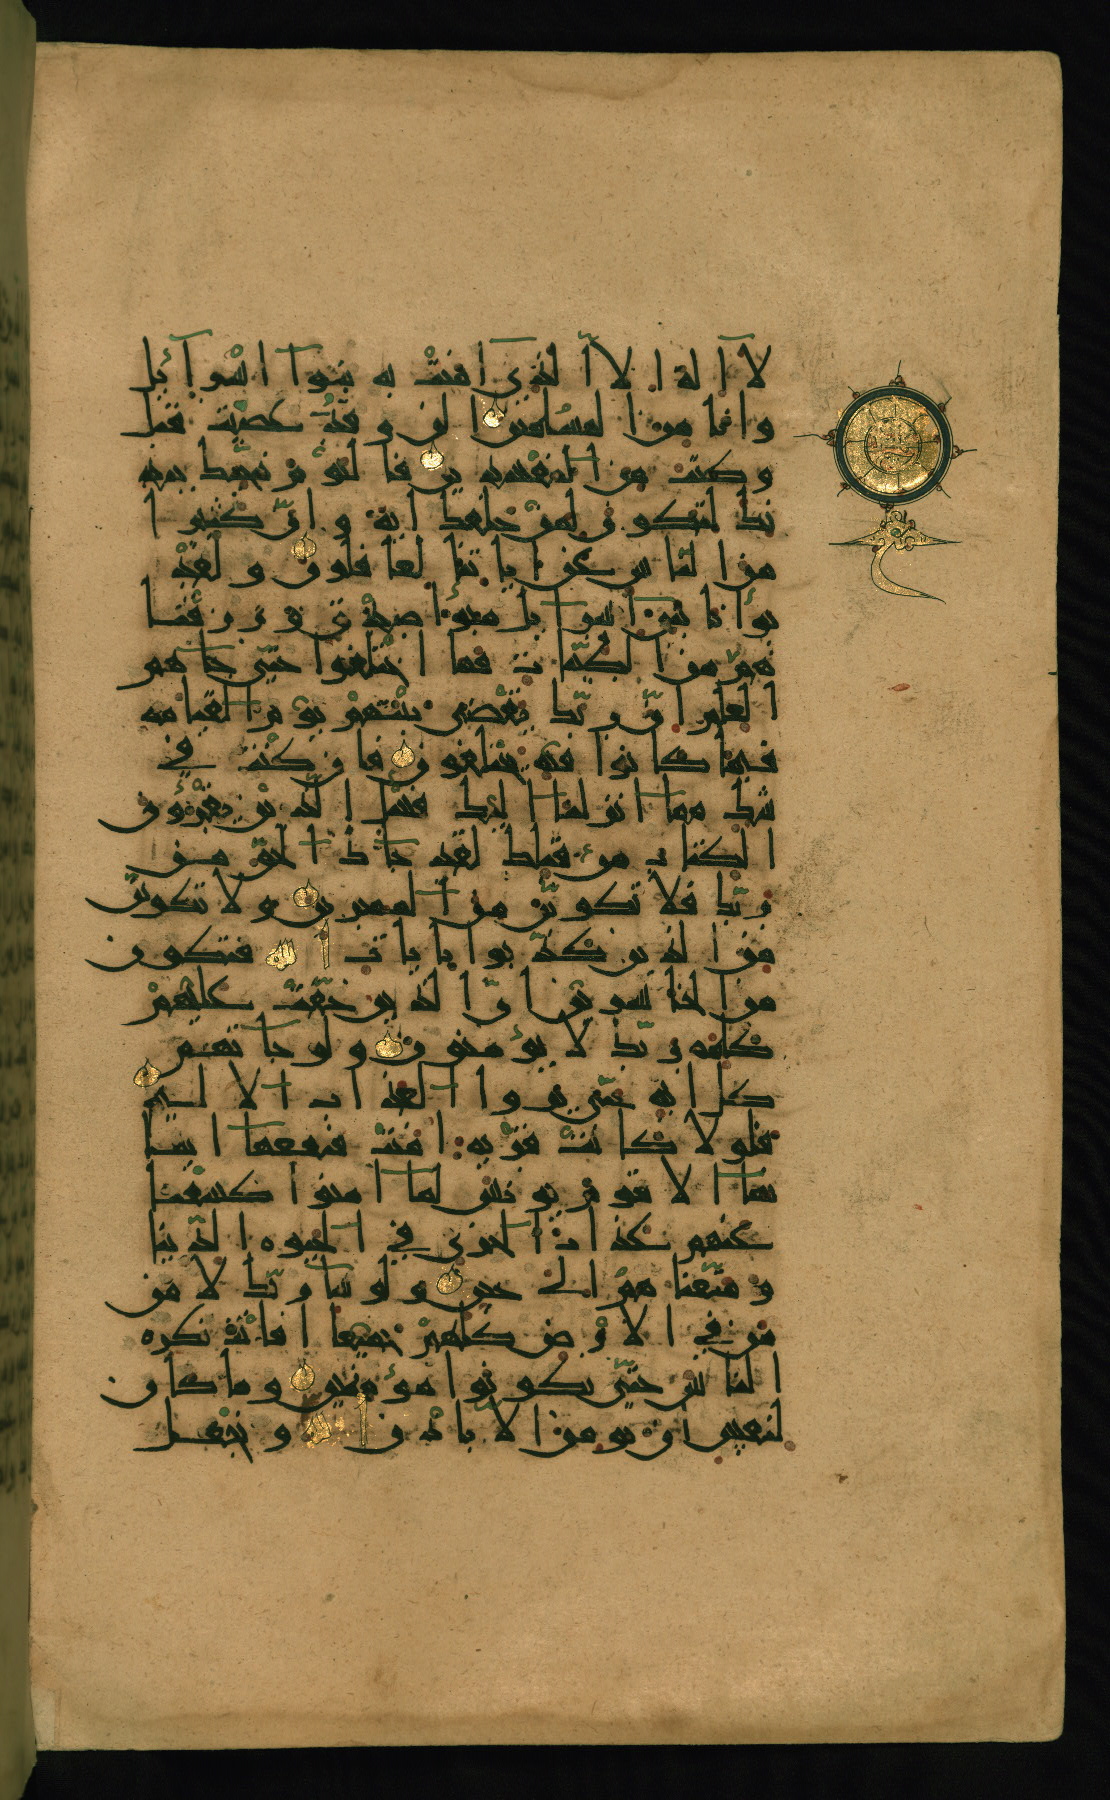 لا اله الا الذي امنت به بنوا اسرائل
وانا من المسلمين الن وقد عصيت قبل
وكنت من المفسدين فاليوم ننجيك ببد
نك لتكون لمن خلفك اية وان كثيرا
من الناس عن اياتنا لغافلون ولقد
بوانا بني اسرايل مبوا صدق ورزقنا
هم من الطيبات فما اختلفوا حتى جاهم
العلم ان ربك يقضي بينهم يوم القيامه
فيما كانوا فيه يختلفون فان كنت في
شك مما انزلنا اليك فسل الذين يقرؤن
الكتاب من قبلك لقد جاك الحق من
ربك فلا تكونن من الممترين ولا تكونن
من الذين كذبوا بايات الله فتكون
من الخاسرين ان الذين حقت عليهم
كلمه ربك لا يؤمنون ولو جاتهم
كل ايه حتى يروا العذاب الاليم
فلولا كانت قريه امنت فنفعها ايما
نها الا قوم يونس لما امنوا كشفنا
عنهم عذاب الخزي في الحيوه الدنيا
ومتعناهم الى حين ولو شا ربك لامن
من في الارض كلهم جميعا افانت تكره
الناس حتى يكونوا مؤمنين وما كان
لنفس ان تومن الا باذن الله ويجعل